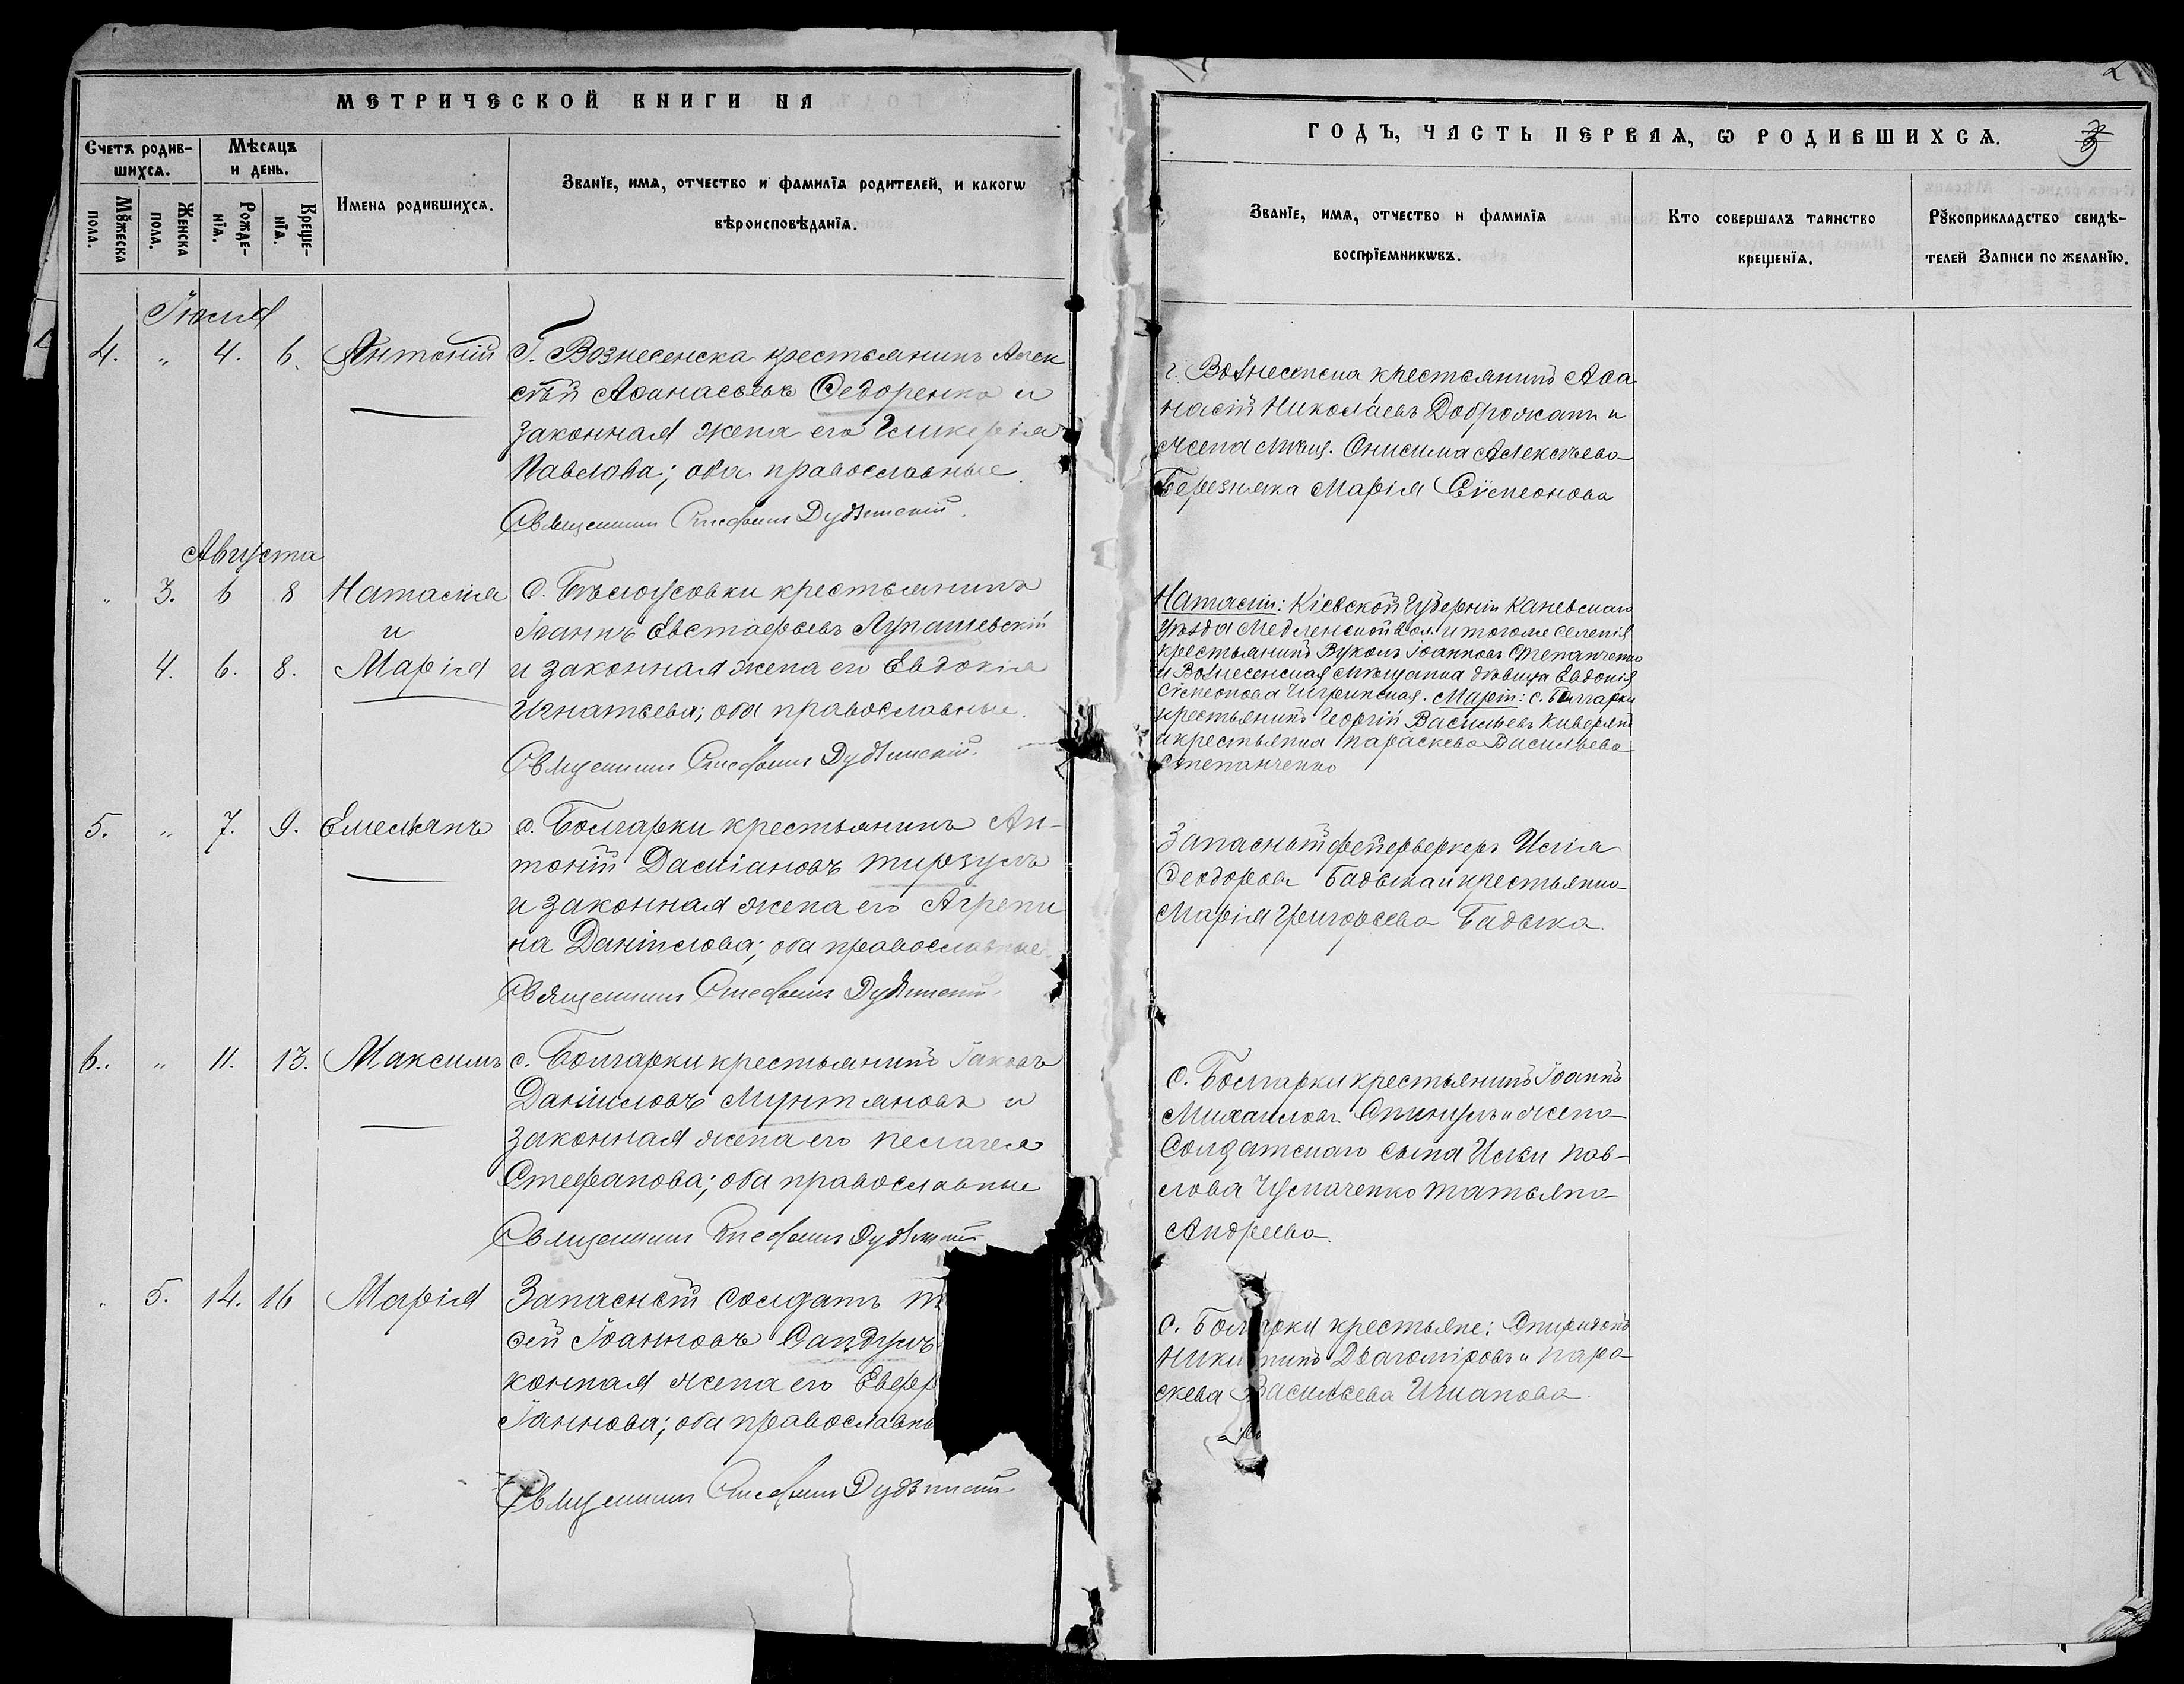 МЕТРИЧЕСКОЙ КНИГИ НА
Счетъ родив-
шихсѧ.
Мѣсяцъ
и день.
Мꙋжеска
пола.
Женска
пола.
Рожде-
нїѧ.
Креще-
нїѧ.
Имена родившихсѧ.
Званїе, имѧ, отчество и фамилїѧ родителей, и какогѡ
вѣроисповѣданїѧ.
Іюля
4. " 4. 6. Антоній
Г. Вознесенска крестьянинъ Алек
сѣй Аѳанасьевъ Ѳедоренко и
законная жена его Гликерія
Павлова; оба православные.
Священникъ Дудзинскій.
Августа
" 3. 6 8 Наталія
и
4. 6. 8. Марія
с. Бѣлоусовки крестьянинъ
Іоаннъ Евстафьевъ Лупашевскій
и законная жена его Евдокія
Игнатьева; оба православные.
Священникъ Дудзинскій.
5. " 7. 9. Емельянъ
с. Болгарки крестьянинъ Ан-
тоній Даміановъ Тирзулъ
и законная жена его Агрепи
на Даніилова; оба православные.
Священникъ Дудзинскій.
6. " 11. 13. Максимъ
с. Болгарки крестьянинъ Іаковъ
Данииловъ Мунтяновъ и
законная жена его Пелагея
Стефанова; оба православные
Священникъ Дудзинскій
" 5. 14. 16 Марія
Запасный солдатъ
ѳей Іоанновъ Сандулъ
конная жена его Евфр
Іаннова; оба православны
Священникъ Дудзинскій
2
ГОДЪ, ЧАСТЬ ПЕРВАѦ, Ѡ РОДИВШИХСѦ.
3
Званїе, имѧ, отчество и фамилїѧ
воспрїемникѡвъ.
Кто совершалъ таинство
крещенїѧ.
Рꙋкоприкладство свидѣ-
телей Записи по желанїю.
г. Вознесенска крестьянинъ Аѳа
насій Николаевъ Доброжанъ и
жена мѣщ. Онисима Алексѣева
Березняка Марія Сѵмеонова
Наталіи: Кіевской Губерніи Каневскаго
уѣзда Медленской вол. и того же селенія
крестьянинъ Вуколъ Іоанновъ Степанченко
и Вознесенская мѣщанка дѣвица Евдокія
Сѵмеонова Чигринская. Маріи: с. Болгарки
крестьянинъ Георгій Васильевъ
и крестьянка Параскева Васильева
Степанченко
Запасный фейерверкеръ Илія
Ѳеодоровъ Бадыка и крестьянка
Марія Григорьева Бадыка.
с. Болгарки крестьянинъ Іоаннъ
Михаиловъ Спинулъ и жена
Солдатскаго сына Ильи Пав-
лова Чумаченко Татьяна
Андреева.
с. Болгарки крестьяне: Спиридонъ
Никитинъ Драгоміровъ и Пара
скева Васильева Иманова.